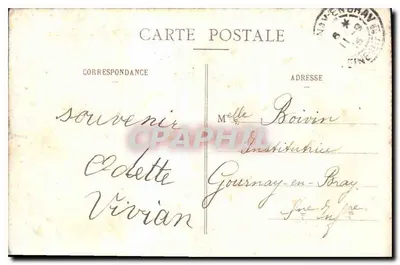 CARTE POSTALE
CORRESPONDANCE
ADRESSE
souvenir
Odette
Vivian
Melle Boivin
Institutrice
Gournay-en-Bray
Sne Infre
CPArama.com